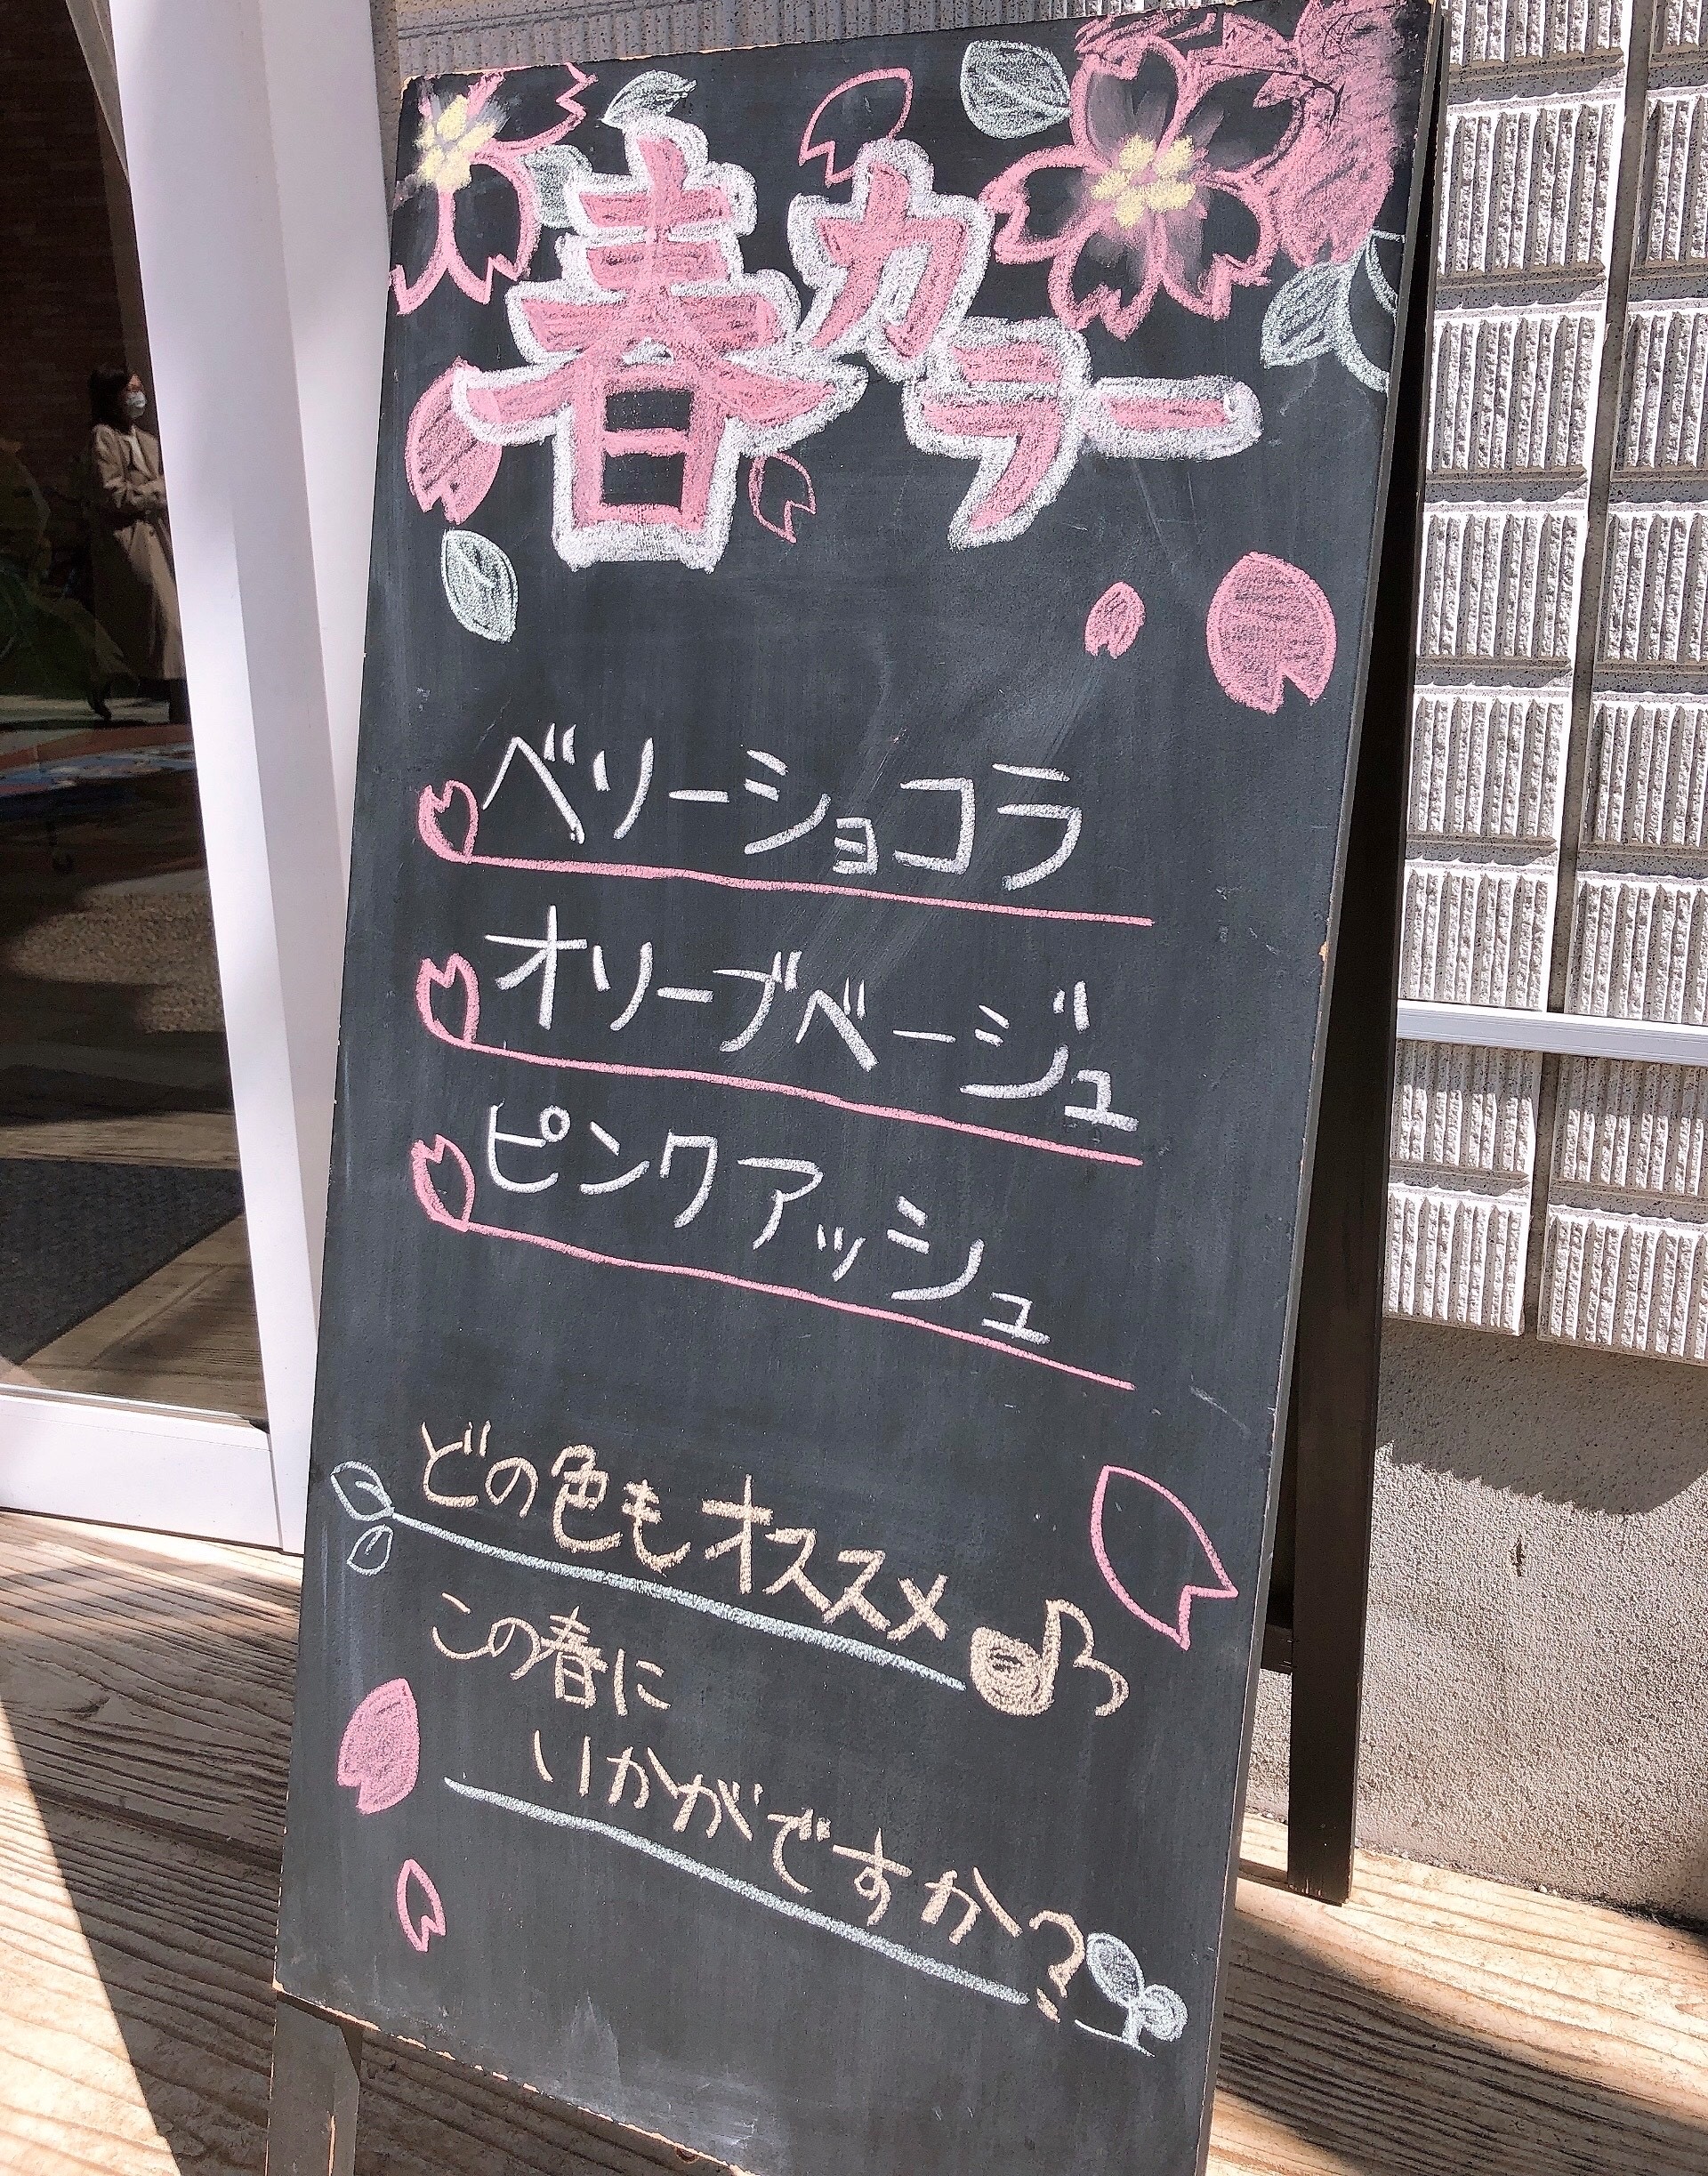 春カラー
ベリーショコラ
オリーブベージュ
ピンクアッシュ
どの色もオススメ♪
この春に
いかがですか?